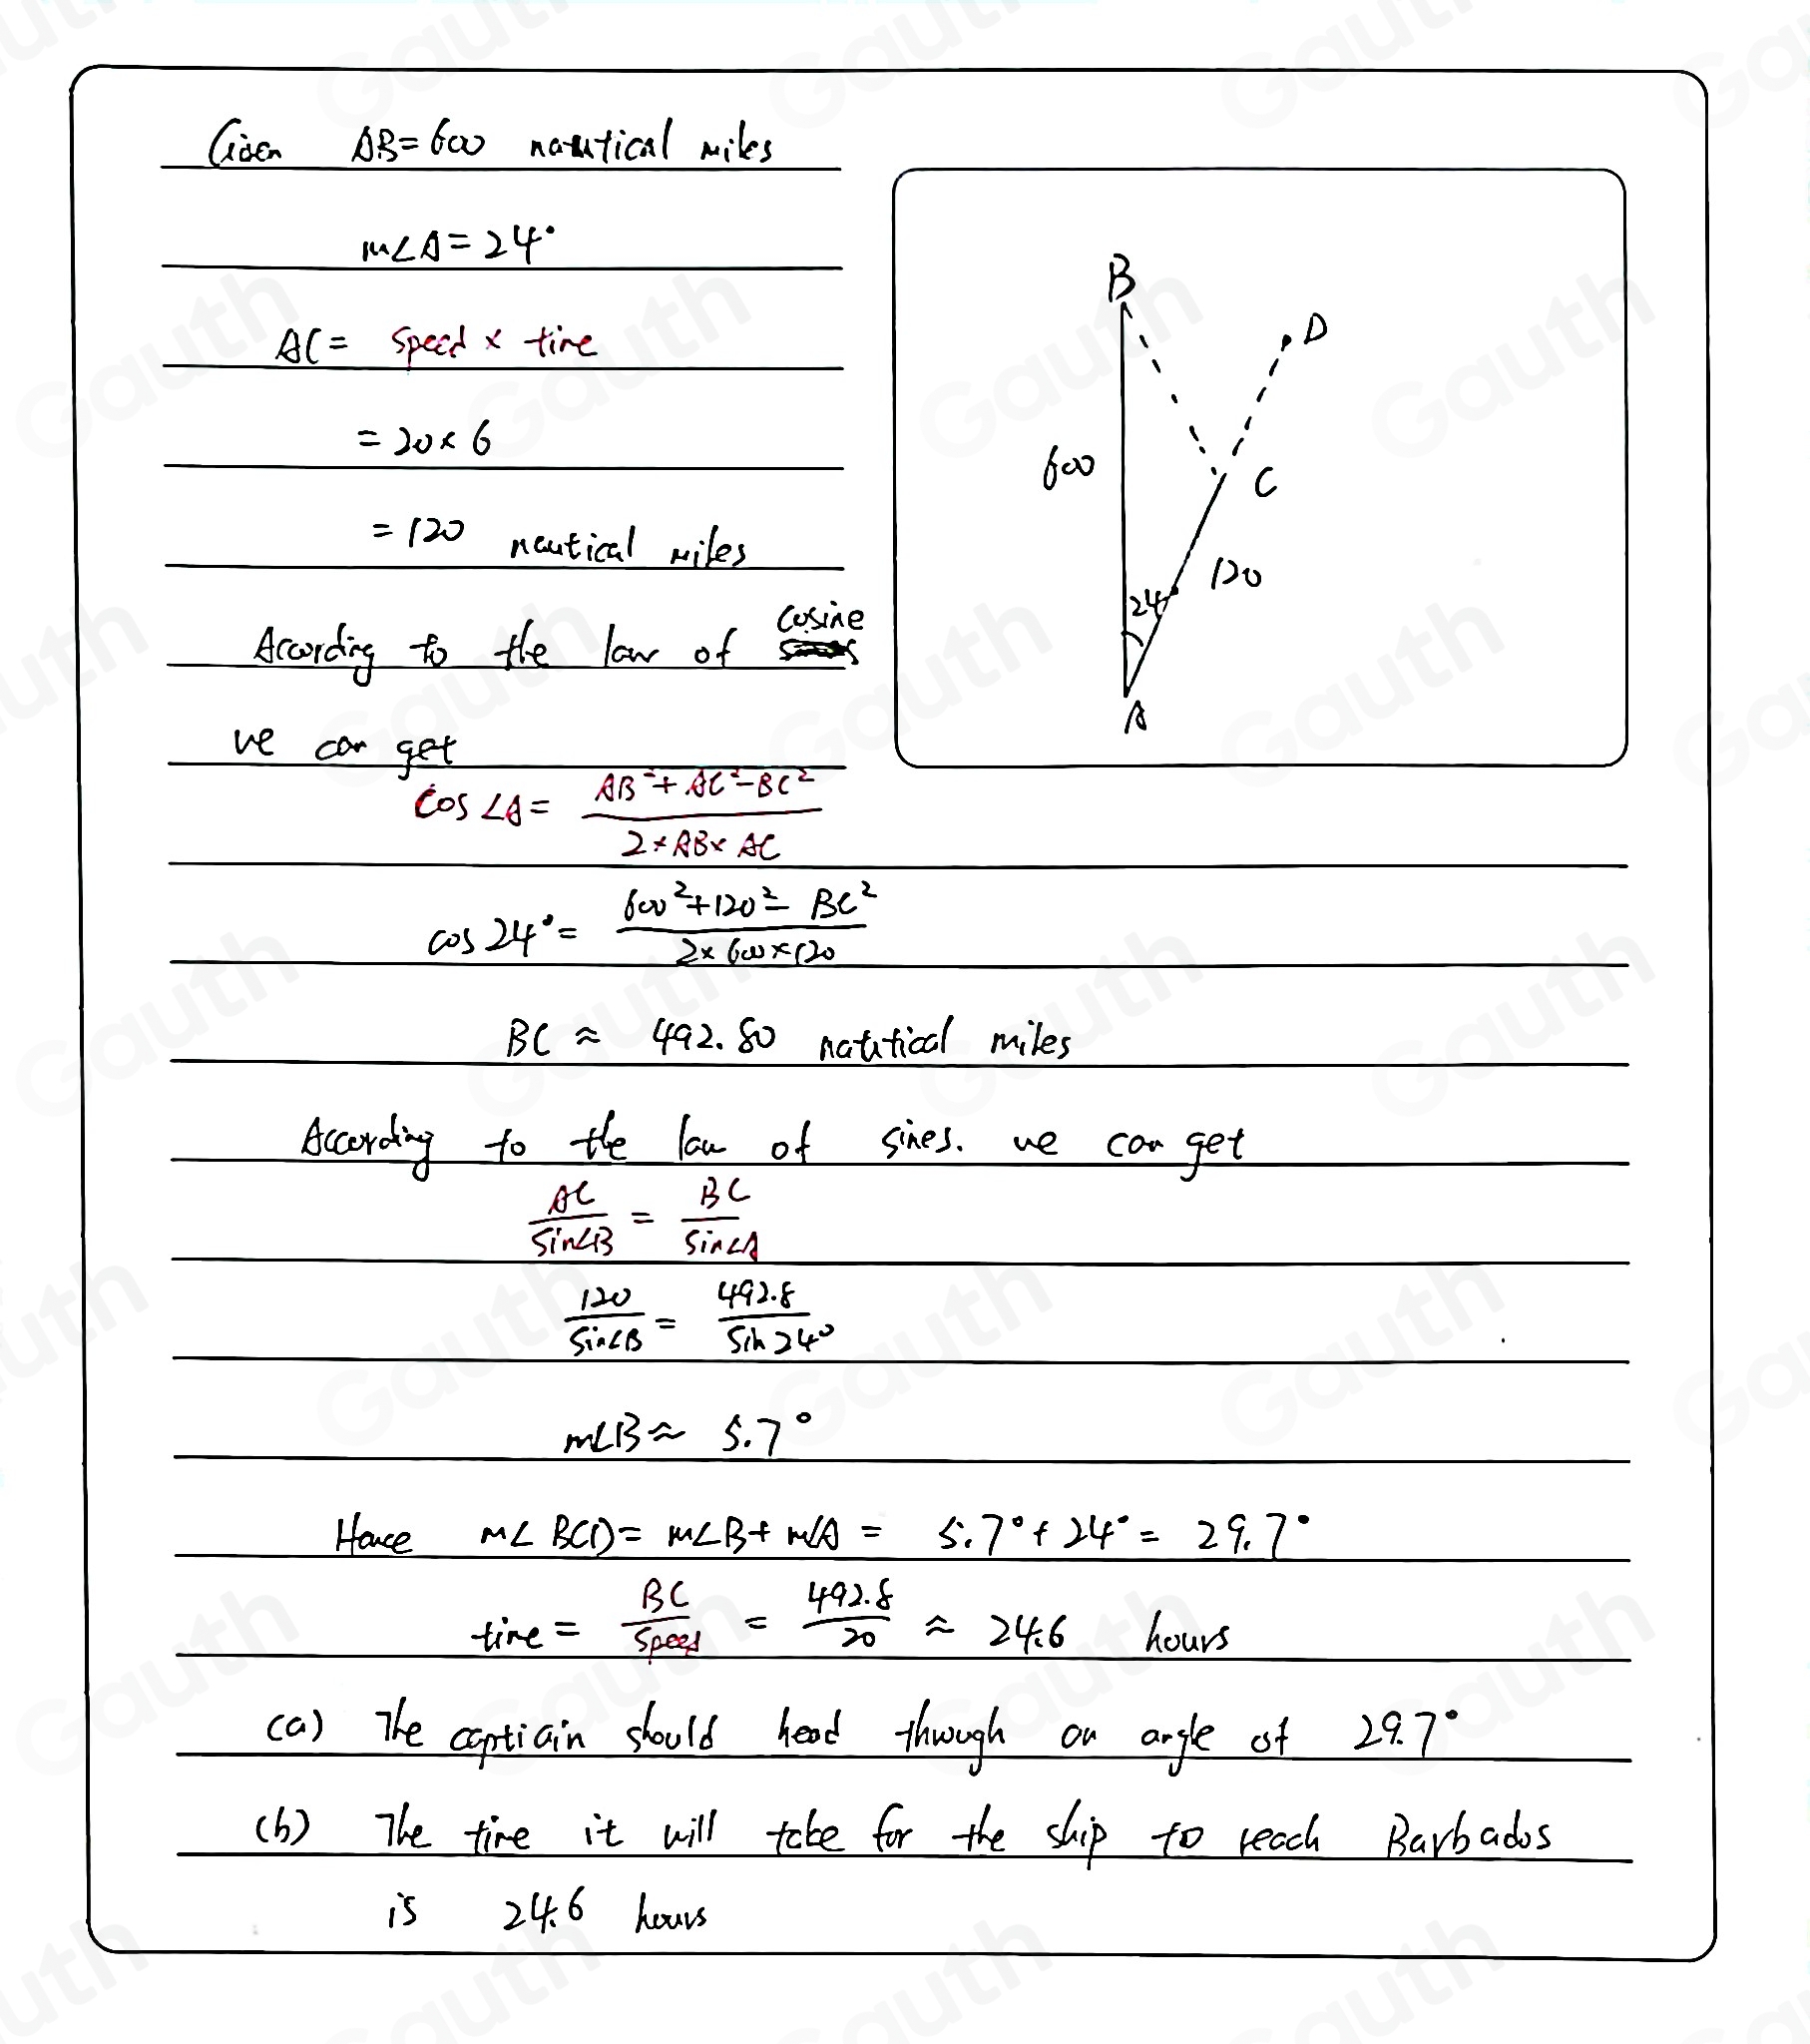 Given AB=600 natutical miles
m∠A=24°
AC= speed × time
=20×6
=120 nautical miles
According to the law of cosine
we can get
cos∠A= (AB²+AC²-BC²)/(2×AB×AC)
cos24°= (600²+120²-BC²)/(2×600×120)
BC ≈ 492.80 natutical miles
According to the law of sines. we can get
AC/sin∠B = BC/sin∠A
120/sin∠B = 492.8/sin24°
m∠B≈ 5.7°
Hence m∠BCD= m∠B+m∠A = 5.7°+24°= 29.7°
time= BC/speed = 492.8/20 ≈ 24.6 hours
(a) The captiain should head through an angle of 29.7°
(b) The time it will take for the ship to reach Barbados
is 24.6 hours
B
D
600
C
120
24°
A
Gauth